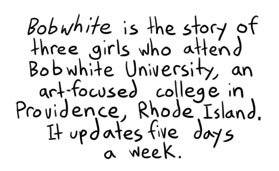 Bobwhite is the story of
three girls who attend
Bobwhite University, an
art-focused college in
Providence, Rhode Island.
It updates five days
a week.